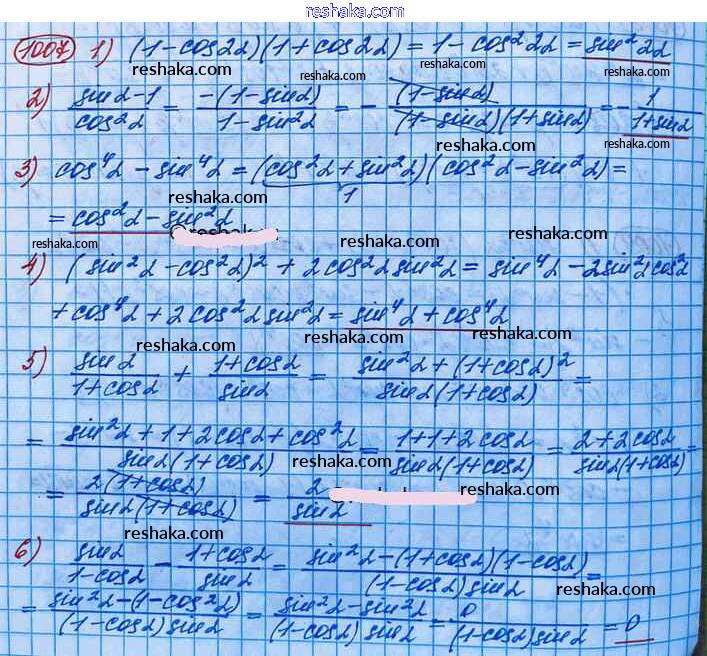 reshaka.com
1007 1) (1-cos2α)(1+cos2α) = 1-cos²2α = sin²2α
reshaka.com reshaka.com reshaka.com
2) (sinα-1)/(cos²α) = (-(1-sinα))/(1-sin²α) = -(1-sinα)/((1-sinα)(1+sinα)) = -1/(1+sinα)
reshaka.com reshaka.com
3) cos⁴α - sin⁴α = (cos²α + sin²α)(cos²α - sin²α) =
1
reshaka.com
= cos²α - sin²α
reshaka.com reshaka.com reshaka.com
4) (sin²α - cos²α)² + 2cos²α sin²α = sin⁴α - 2sin²α cos²α
+ cos⁴α + 2cos²α sin²α = sin⁴α + cos⁴α
reshaka.com reshaka.com
5) sinα/(1+cosα) + (1+cosα)/sinα = (sin²α + (1+cosα)²)/(sinα(1+cosα)) =
reshaka.com
= (sin²α + 1 + 2cosα + cos²α)/(sinα(1+cosα)) = (1+1+2cosα)/(sinα(1+cosα)) = (2+2cosα)/(sinα(1+cosα)) =
reshaka.com reshaka.com
= 2(1+cosα)/(sinα(1+cosα)) = 2/sinα
reshaka.com
reshaka.com
6) sinα/(1-cosα) - (1+cosα)/sinα = (sin²α-(1+cosα)(1-cosα))/((1-cosα)sinα) =
reshaka.com reshaka.com
= (sin²α-(1-cos²α))/((1-cosα)sinα) = (sin²α-sin²α)/((1-cosα)sinα) = 0/((1-cosα)sinα) = 0
reshaka.com